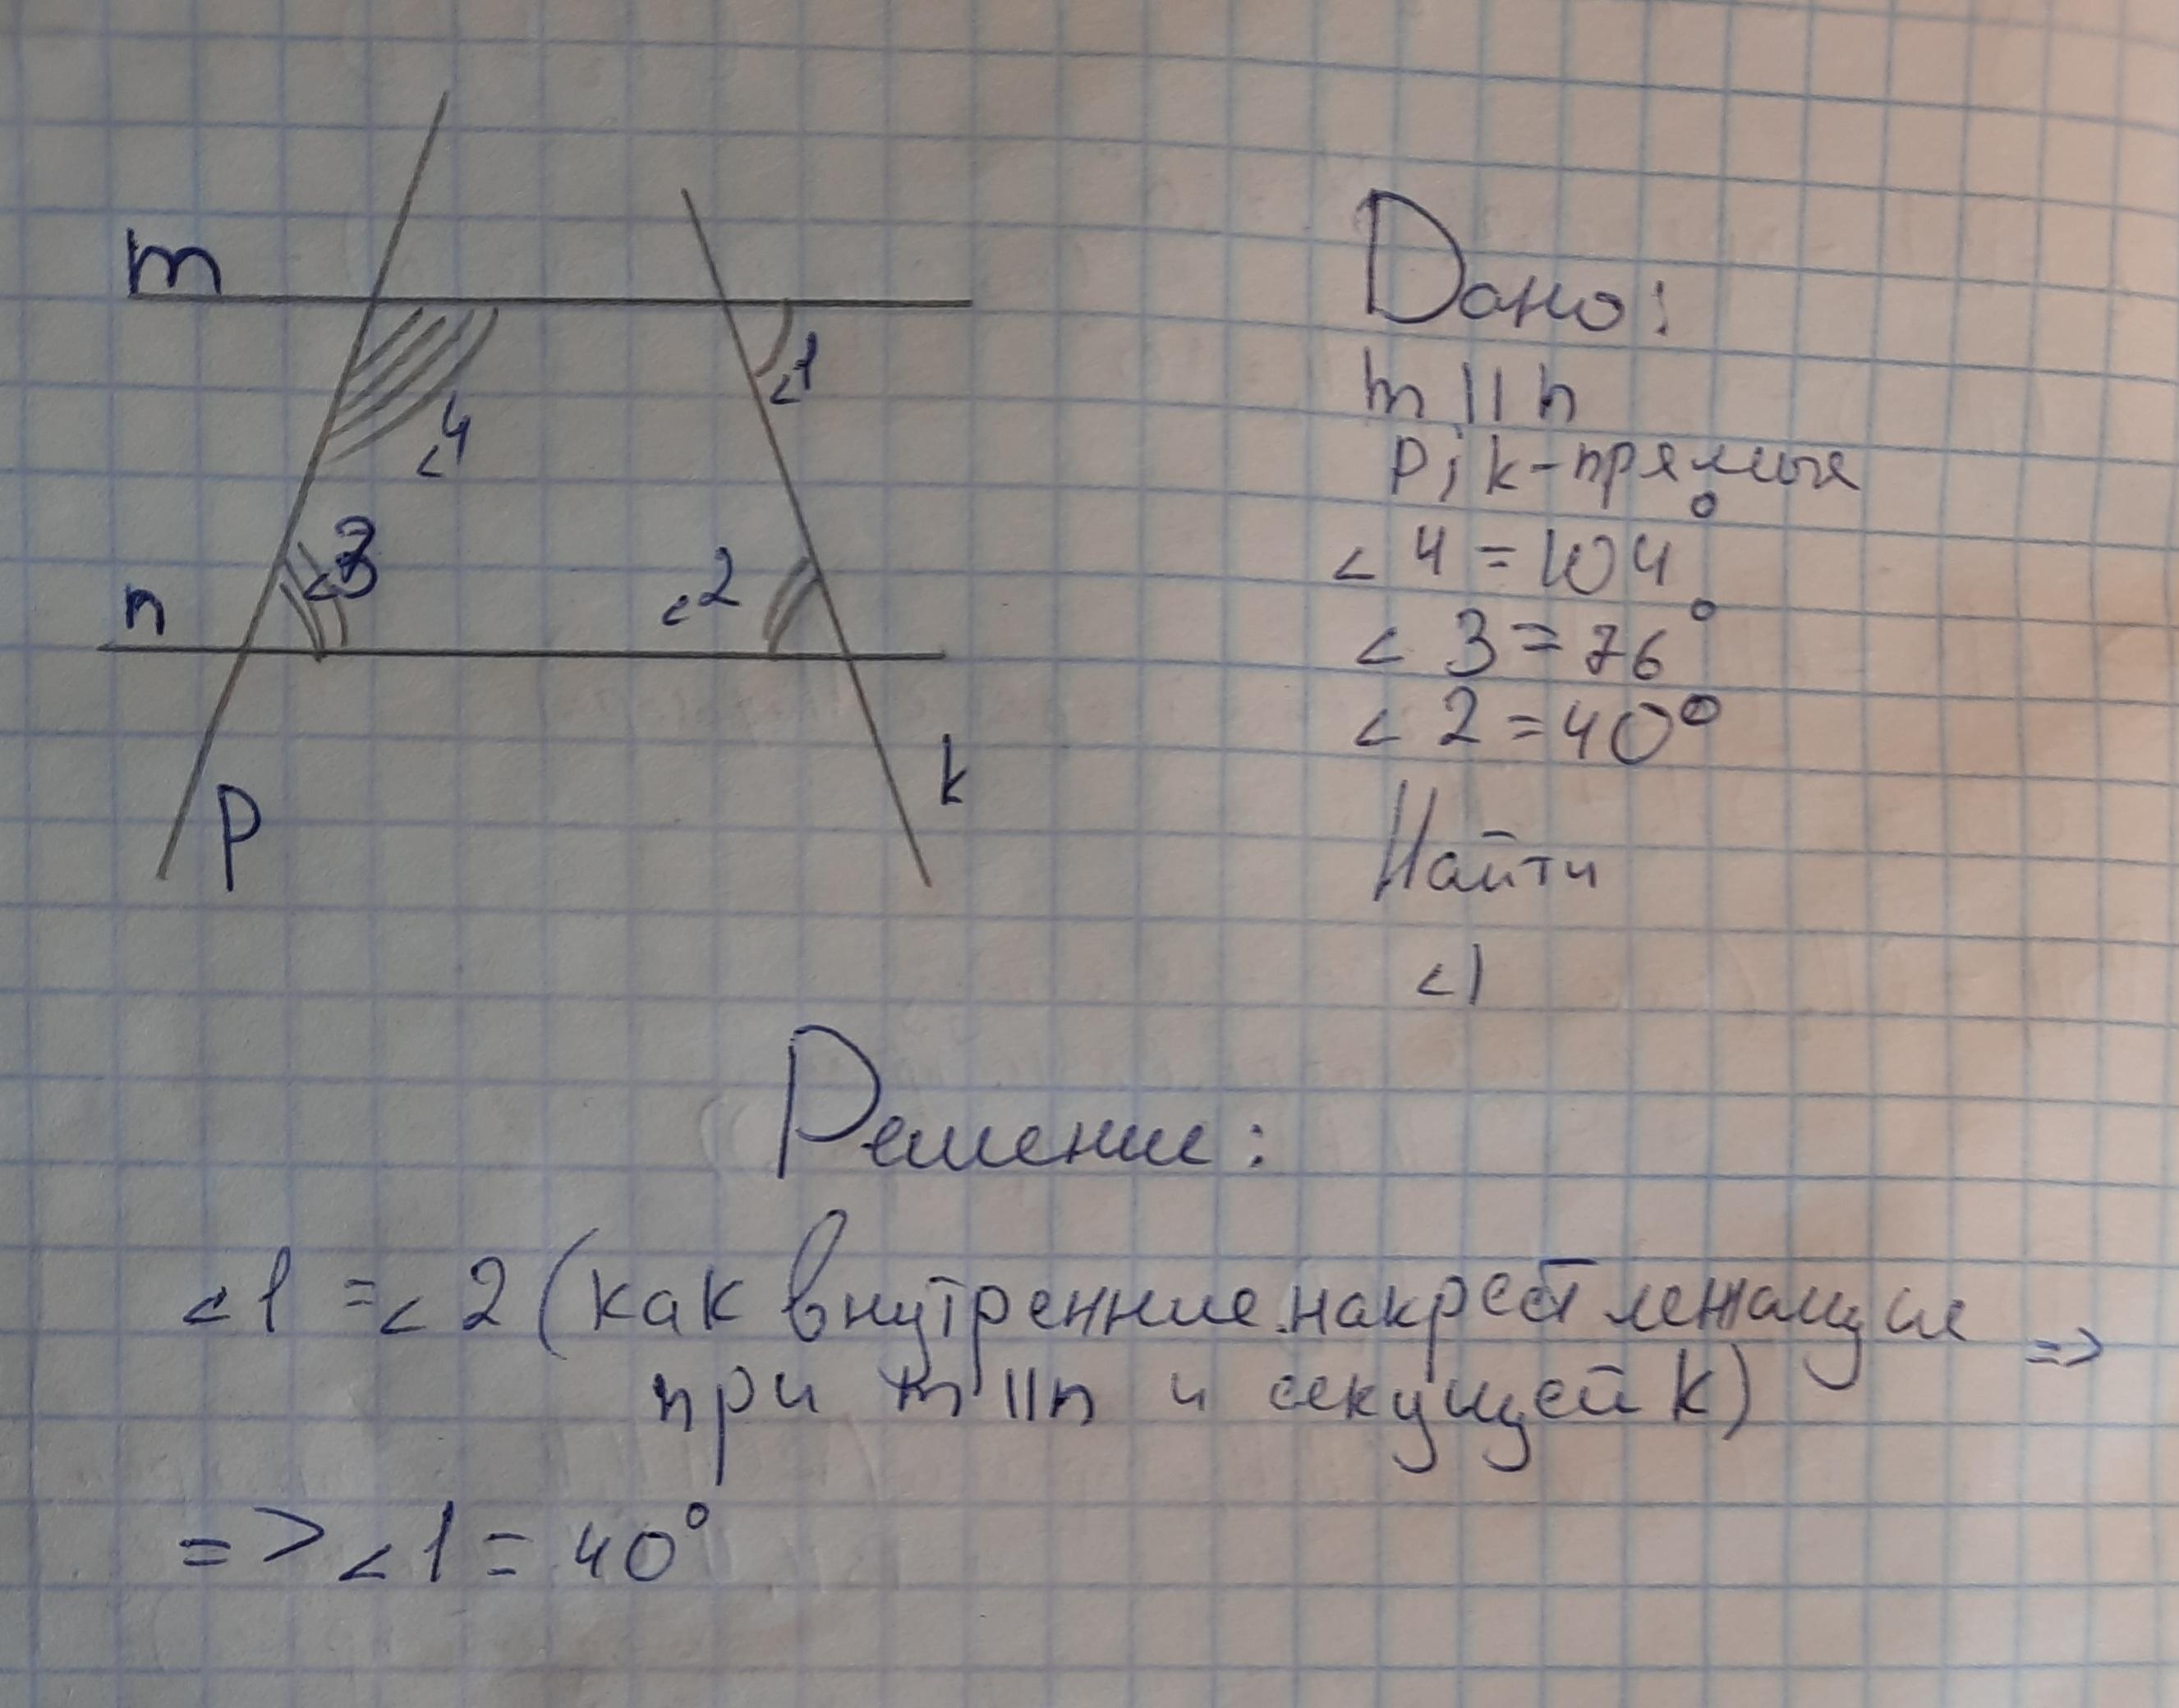 m
n
p
k
∠4
∠1
∠3
∠2
Дано:
m || n
p; k - прямые
∠ 4 = 104°
∠ 3 = 76°
∠ 2 = 40°
Найти
∠1
Решение:
∠1 = ∠2 (как внутренние накрест лежащие =>
при m || n и секущей k)
=> ∠1 = 40°